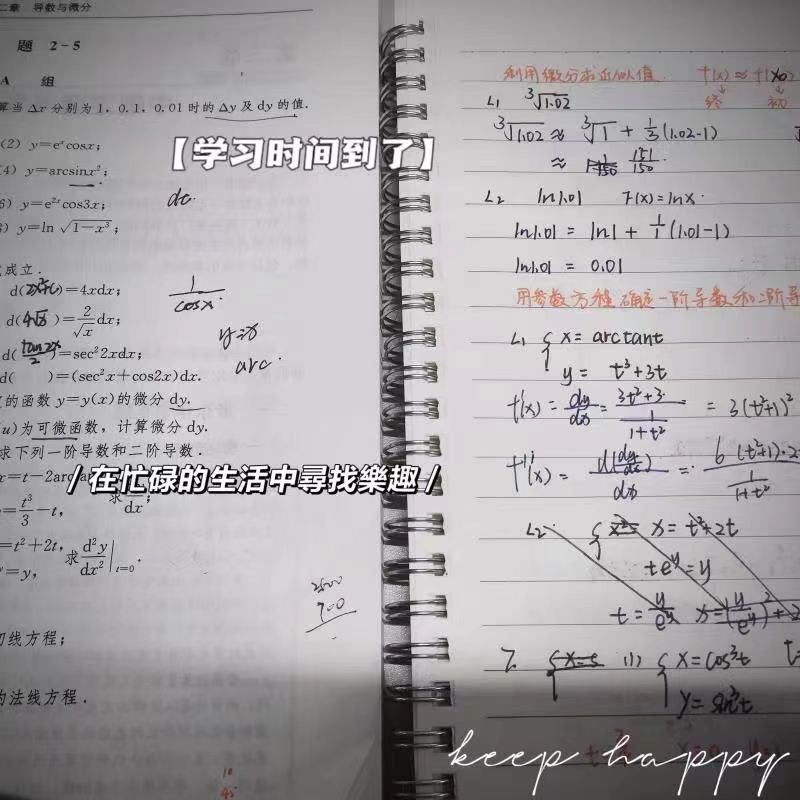 二章 导数与微分
题 2-5
A 组
算当 Δx 分别为 1, 0.1, 0.01 时的 Δy 及 dy 的值.
(2) y=eˣcosx;
4) y=arcsinx²;
6) y=e²ˣcos3x;
) y=ln √(1-x³);
成立.
d( )=4xdx;
d(4√x )=2/√x dx;
d(tan2x/2)=sec²2xdx;
d( )=(sec²x+cos2x)dx.
的函数 y=y(x)的微分 dy.
u)为可微函数, 计算微分 dy.
求下列一阶导数和二阶导数.
x=t-2arc
=t³/3-t,
求 dx;
=t²+2t,
=y,
求 d²y/dx²|t=0.
切线方程;
的法线方程.
【学习时间到了】
/ 在忙碌的生活中尋找樂趣 /
1/cosx.
arc.
700
利用微分求近似值. f(x) ≈ f(x₀)
终 初
L1 ³√1.02
³√1.02 ≈ ³√1 + 1/3(1.02-1)
≈ 151/150.
L2 ln1.01 F(x)=lnx.
ln1.01 = ln1 + 1/1(1.01-1)
ln1.01 = 0.01
用参数方程确定一阶导数和二阶导
L1 { x= arctant
y= t³+3t
f'(x)= dy/dx = 3t²+3/(1/(1+t²)) = 3(t²+1)²
f''(x)= d(dy/dx)/dx = 6(t²+1)·2/(1/(1+t²))
L2 { x= t²+2t
te^y=y
t= y/e^y x=(y/e^y)²+2
7. (1) { x=cos³t
y=sin³t
keep happy